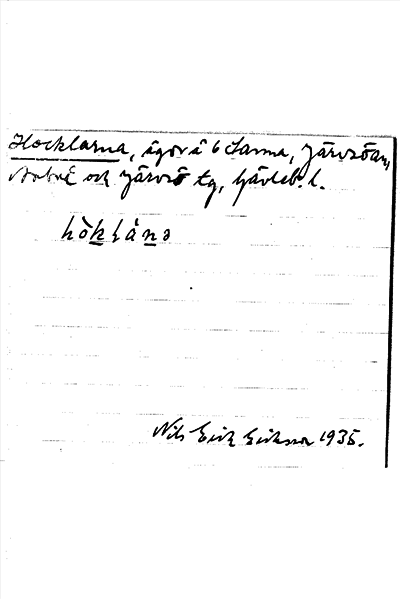 Hocklarna, ägor i 6 Sanna, Järvsöan,
och Järvsö tg, Gävleb. l.
hòklánə
Nils Erik Eriksson 1935.